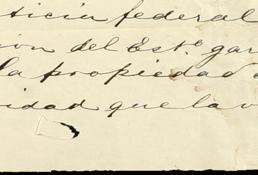 ticia federal
ión del Est.º gar
la propiedad
idad que la v